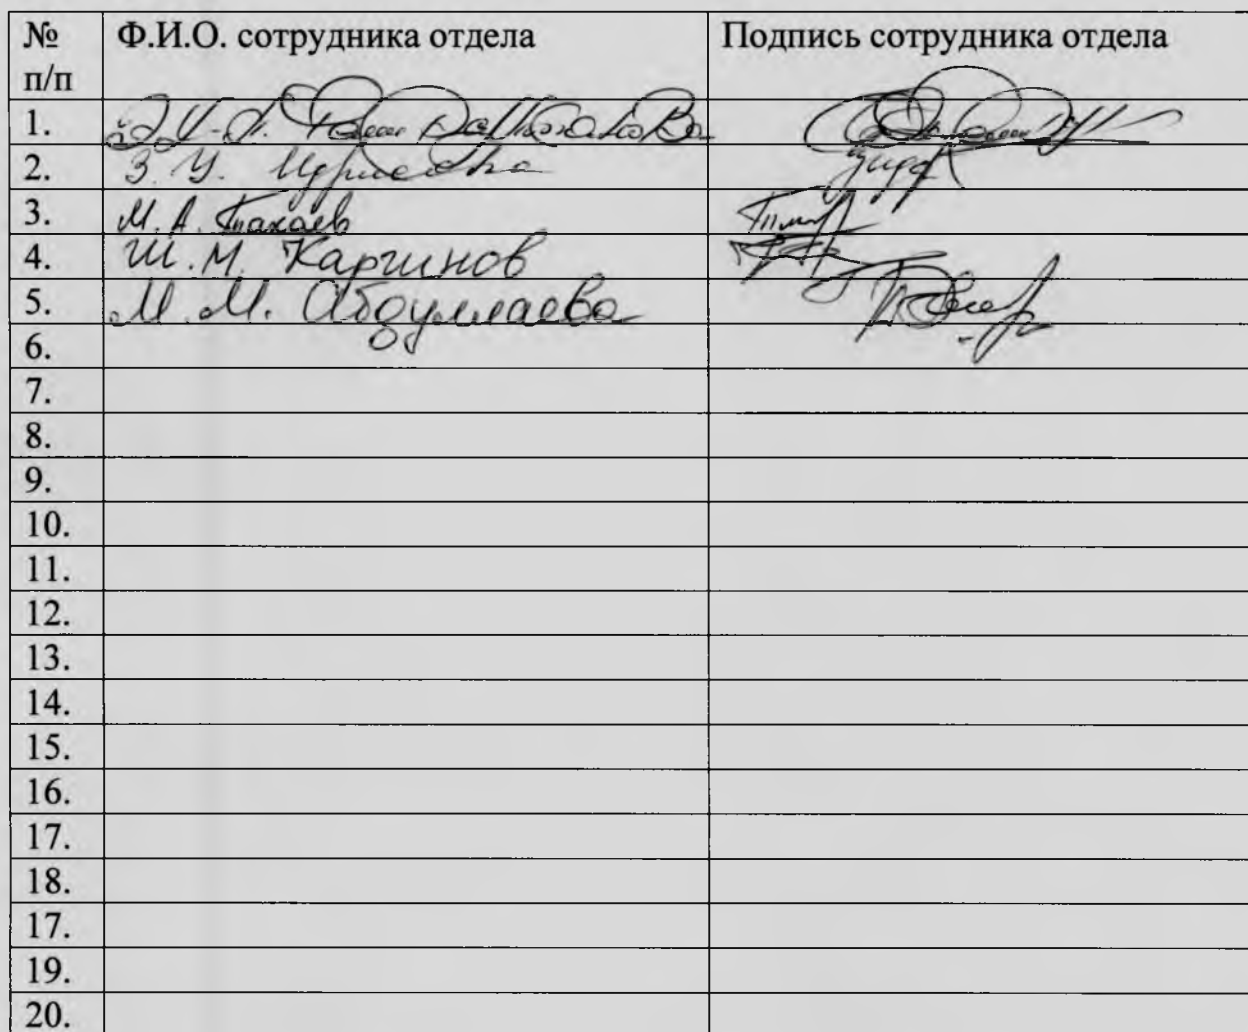 № п/п Ф.И.О. сотрудника отдела Подпись сотрудника отдела
1.
2. З. У.
3. М. А.
4. Ш. М. Каргинов
5. М. М. Абдуллаева
6.
7.
8.
9.
10.
11.
12.
13.
14.
15.
16.
17.
18.
17.
19.
20.